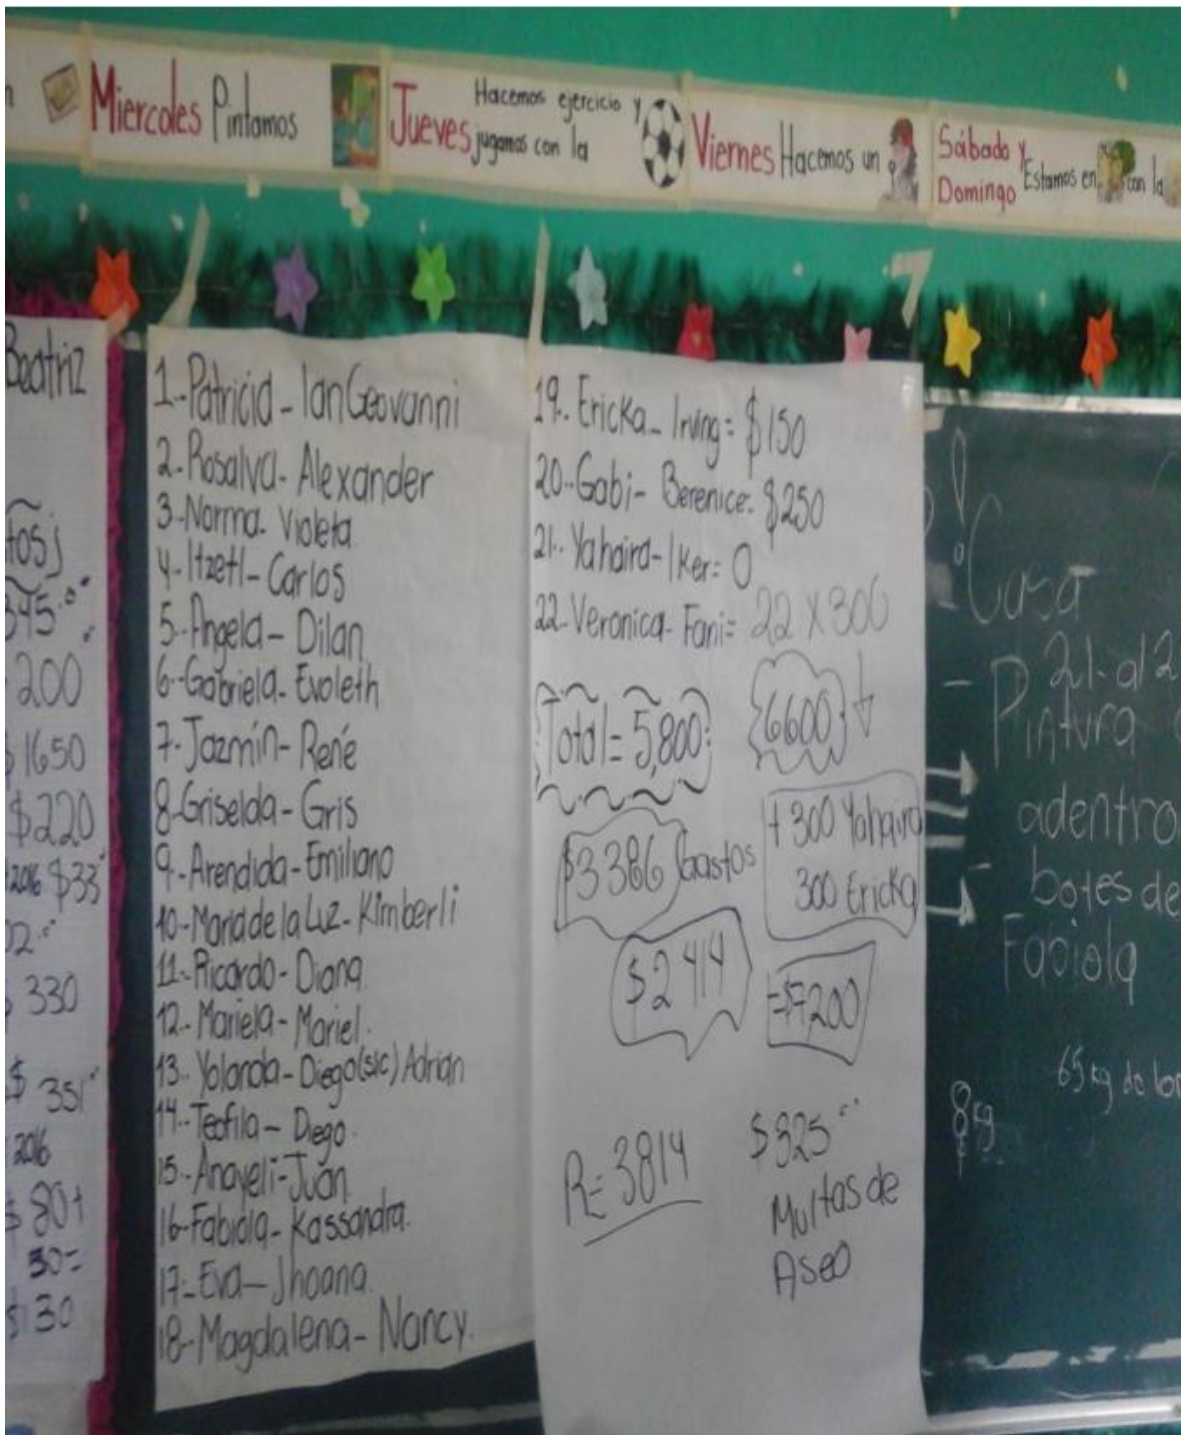 Miercoles Pintamos
Jueves Hacemos ejercicio y
jugamos con la
Viernes Hacemos un
Sábado y
Domingo Estamos en con la
Beatriz
tos
345
200
$1650
$220
2016 $33
330
$ 351
2016
$ 801
30=
$130
1.-Patricia - Ian Geovanni
2.-Rosalva- Alexander
3.-Norma- Violeta
4.-Itzetl- Carlos
5.-Angela- Dilan
6.-Gabriela- Evoleth
7.-Jazmín- René
8.-Griselda- Gris
9.-Arendida- Emiliano
10.-Maria de la Luz- Kimberli
11.-Ricardo- Diana
12.-Mariela- Mariel.
13.-Yolanda- Diego (sic) Adrian
14.-Teofila- Diego.
15.-Anayeli-Juan
16.-Fabiola- Kassandra.
17.-Eva- Jhoana
18.-Magdalena- Nancy.
19.-Ericka- Irving= $150
20.-Gabi- Berenice- $250
21.-Yahaira- Iker= 0
22.-Veronica- Fani= 22 x 300
Total= 5,800
6600
$3386 Gastos
+ 300 Yahaira
300 Ericka
$2414
=$7200
R= 3814
$325
Multas de
Aseo
Casa
- 21- al 2
Pintura
adentro
- botes de
Fabiola
65 kg de
8 kg